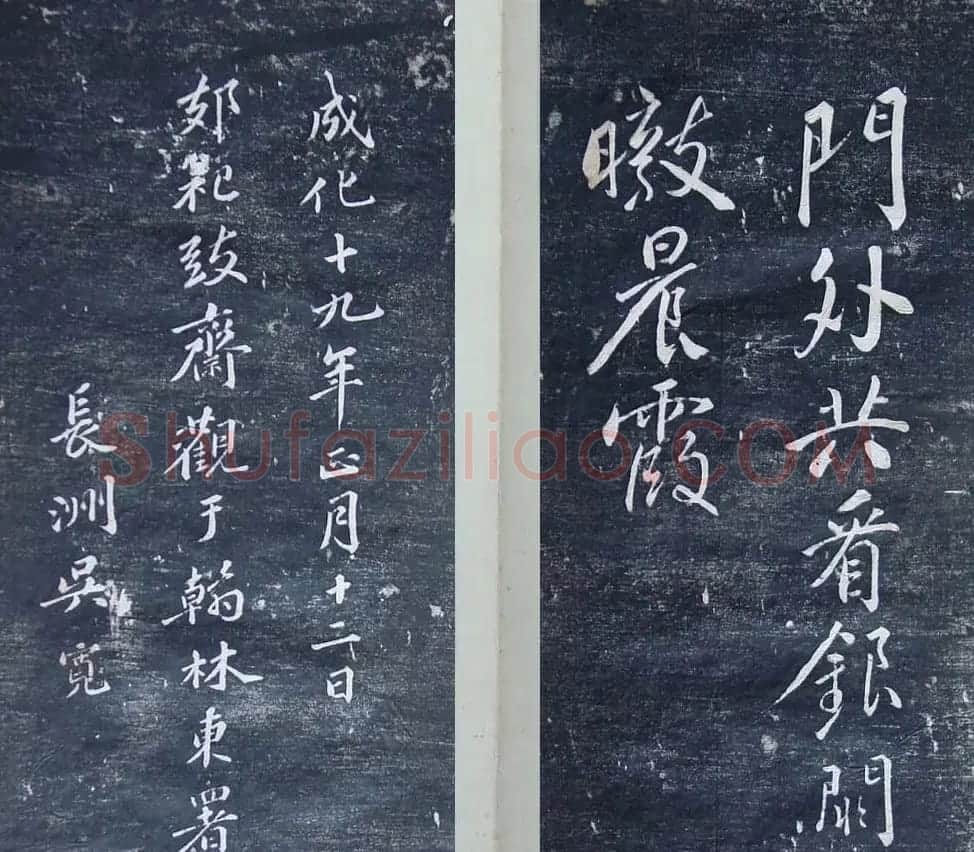 門外共看銀闕
晨霞
成化十九年正月十二日
郊祀致齋觀于翰林東署
長洲吳寬
Shufaziliao.COM